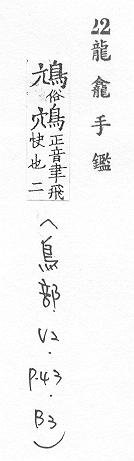 22 龍龕手鑑
俗鴥正音聿飛快也二
(鳥部.V2.P.43.B3)